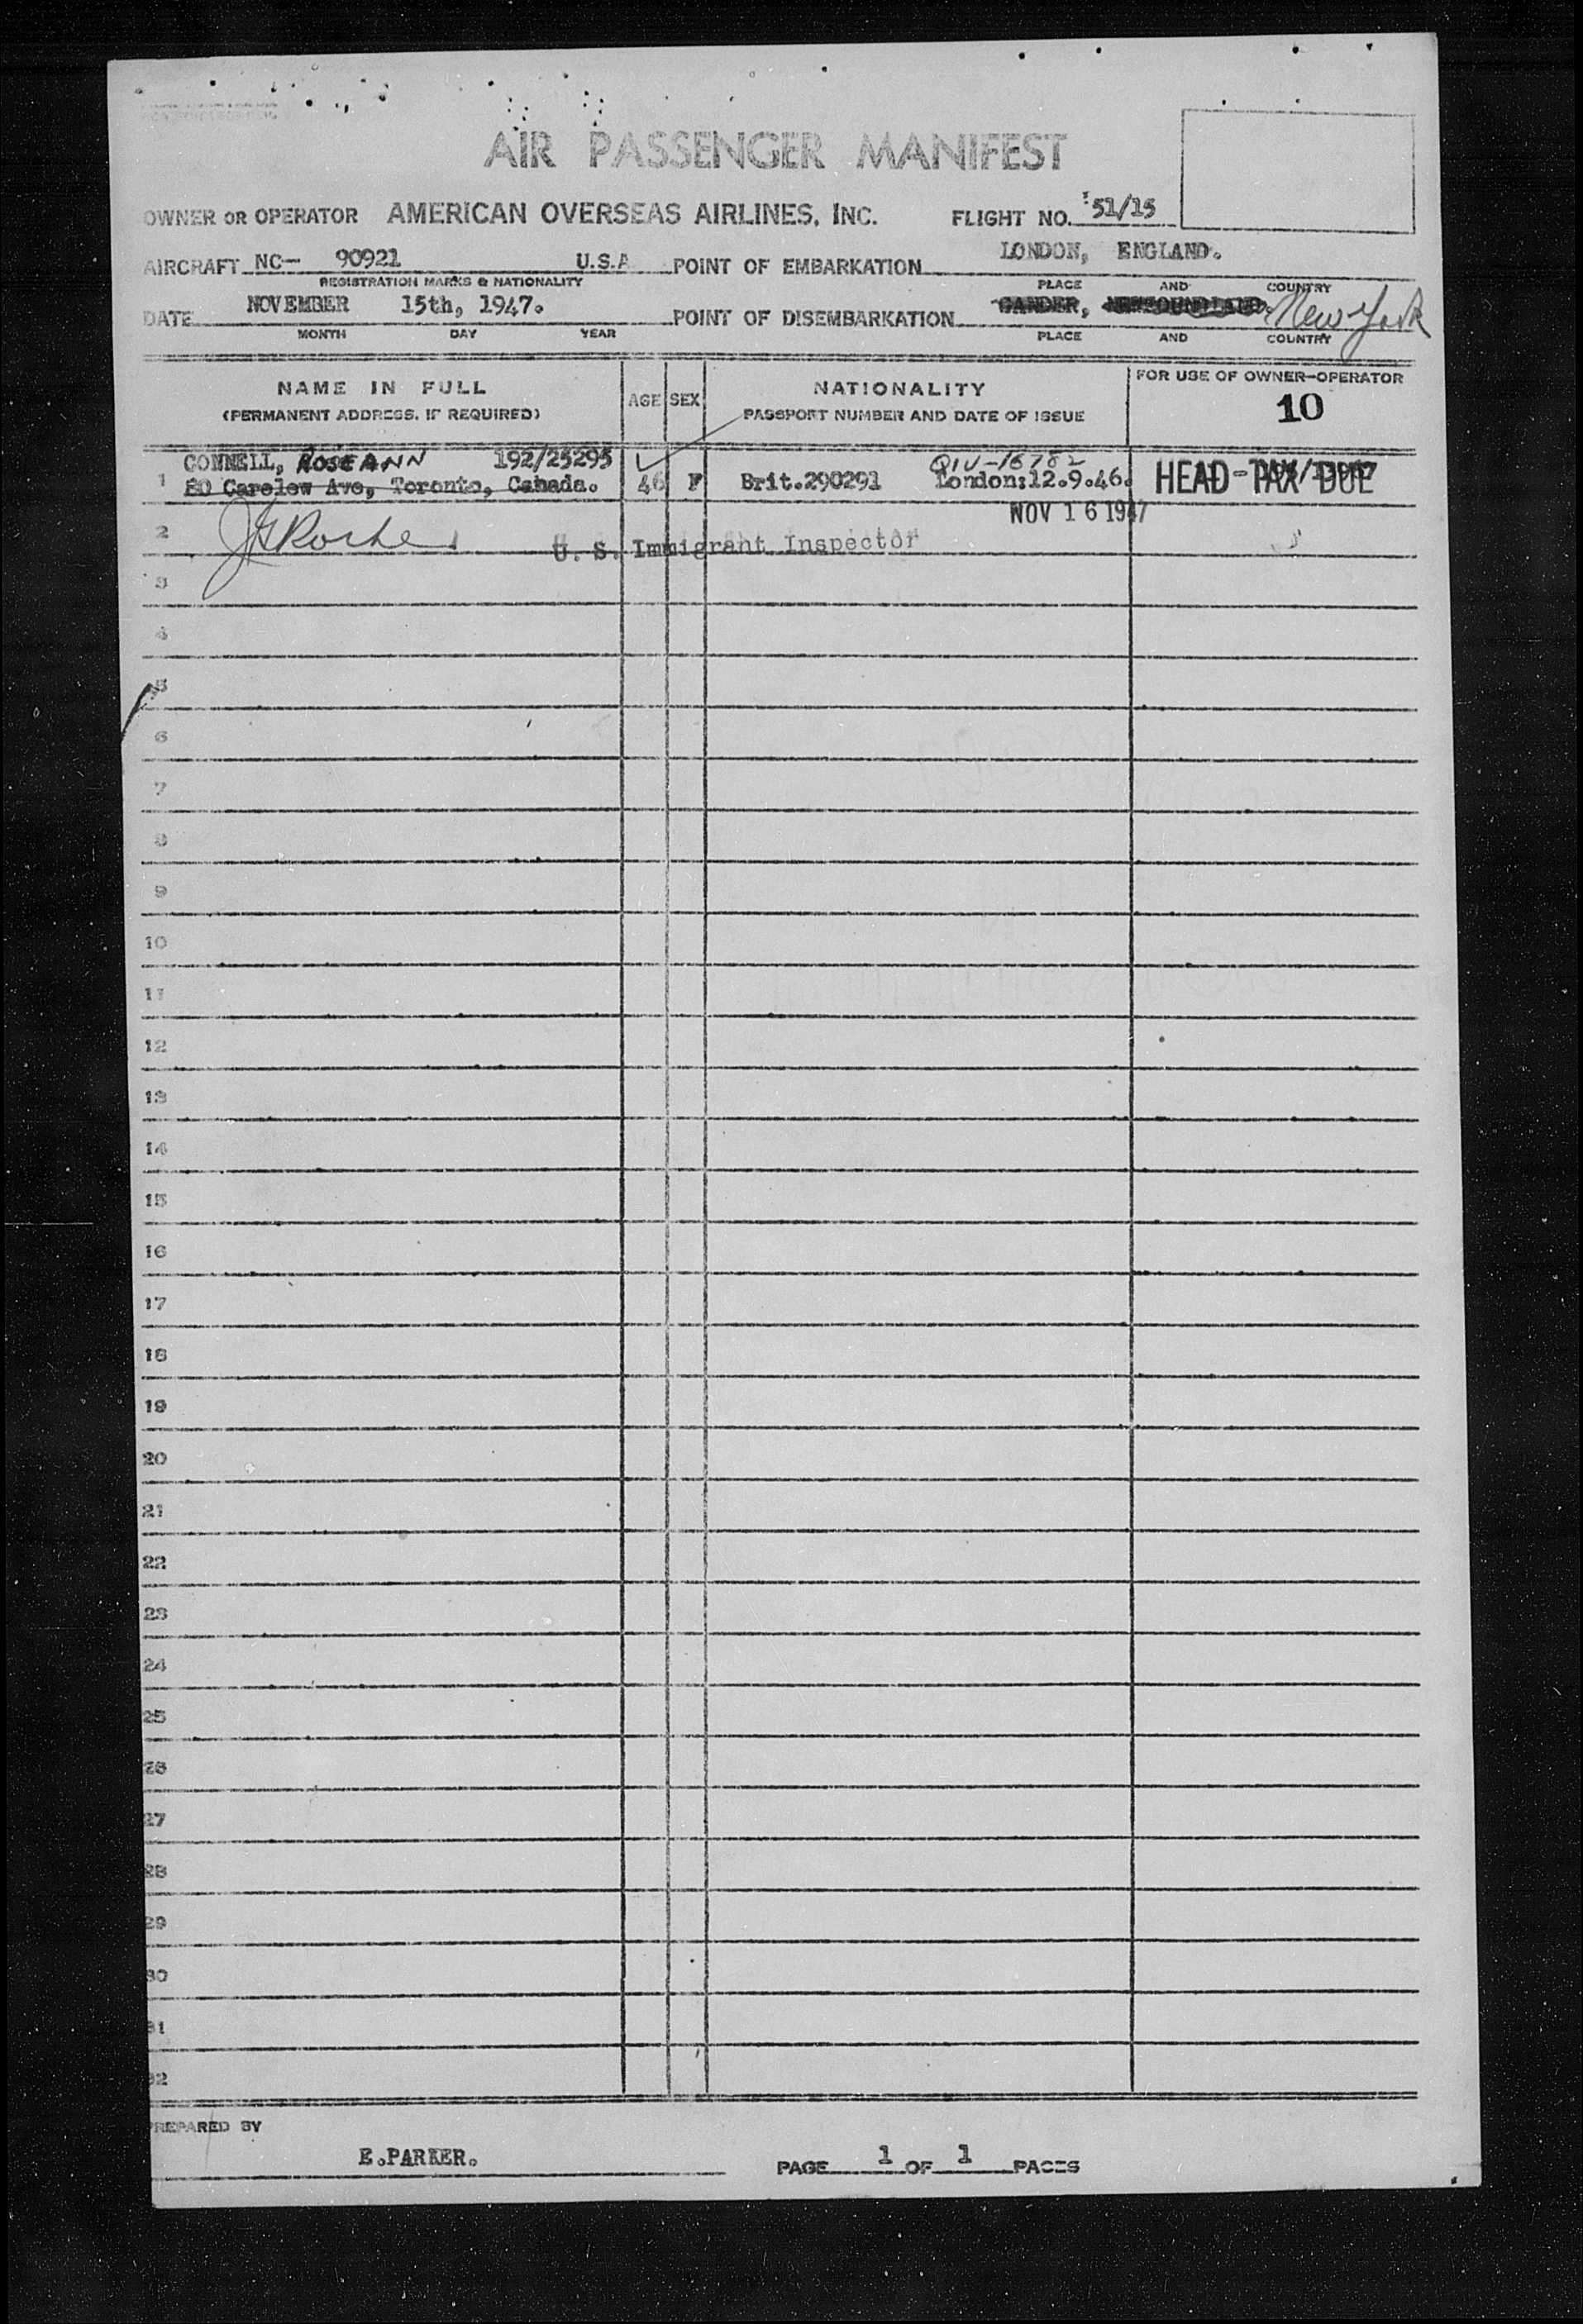 AIR PASSENGER MANIFEST
OWNER OR OPERATOR AMERICAN OVERSEAS AIRLINES, INC. FLIGHT NO. 51/15
AIRCRAFT NC- 90921 U.S.A POINT OF EMBARKATION LONDON, ENGLAND.
REGISTRATION MARKS & NATIONALITY PLACE AND COUNTRY
DATE NOVEMBER 15th, 1947. POINT OF DISEMBARKATION GANDER, NEWFOUNDLAND. New York
MONTH DAY YEAR PLACE AND COUNTRY
NAME IN FULL AGE SEX NATIONALITY FOR USE OF OWNER-OPERATOR
(PERMANENT ADDRESS, IF REQUIRED) PASSPORT NUMBER AND DATE OF ISSUE 10
CONNELL, ROSEANN 192/25295 QIV-16782
1 80 Carelew Ave, Toronto, Canada. 46 F Brit.290291 London:12.9.46. HEAD-TAX DUE
NOV 16 1947
2 U. S. Immigrant Inspector
3
4
5
6
7
8
9
10
11
12
13
14
15
16
17
18
19
20
21
22
23
24
25
26
27
28
29
30
31
32
PREPARED BY
E.PARKER. PAGE 1 OF 1 PAGES